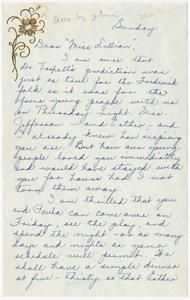 Sunday
Dear "Miss Lillian",
I am sure that
Dr. prediction was
just as true for the Frederick
folk as it was for the
young people with us
on Thursday night. Mrs.
and Esther and
I already knew how inspiring
you are. But how our young
people loved you immediately
and would have stayed with
you for hours had I not
torn them away.
I am thrilled that you
and Paula can come over on
Friday, see the play, and
spend the night - or as many
days and nights as your
schedule will permit. We
shall have a simple dinner
at five-thirty so that Esther